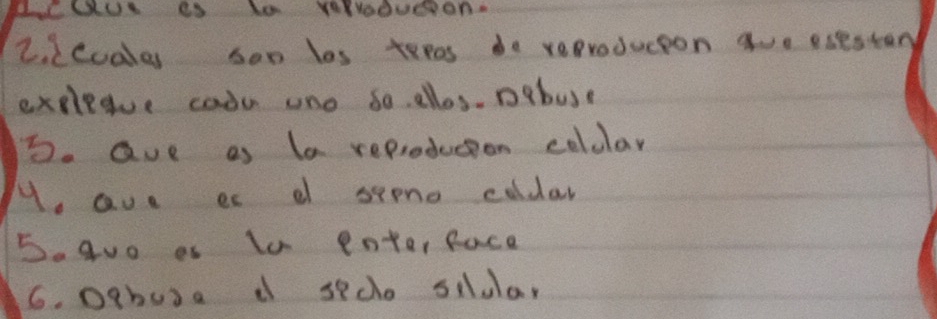 1. ¿Que es la reproducion.
2. ¿Cuales son los tepos de reproducpon que esesten
expleque cadu uno de ellos. Debuse
3. Que es la reproducpon celular
4. que es el seeno celular
5. que es la enterface
6. Debuse el seclo selular